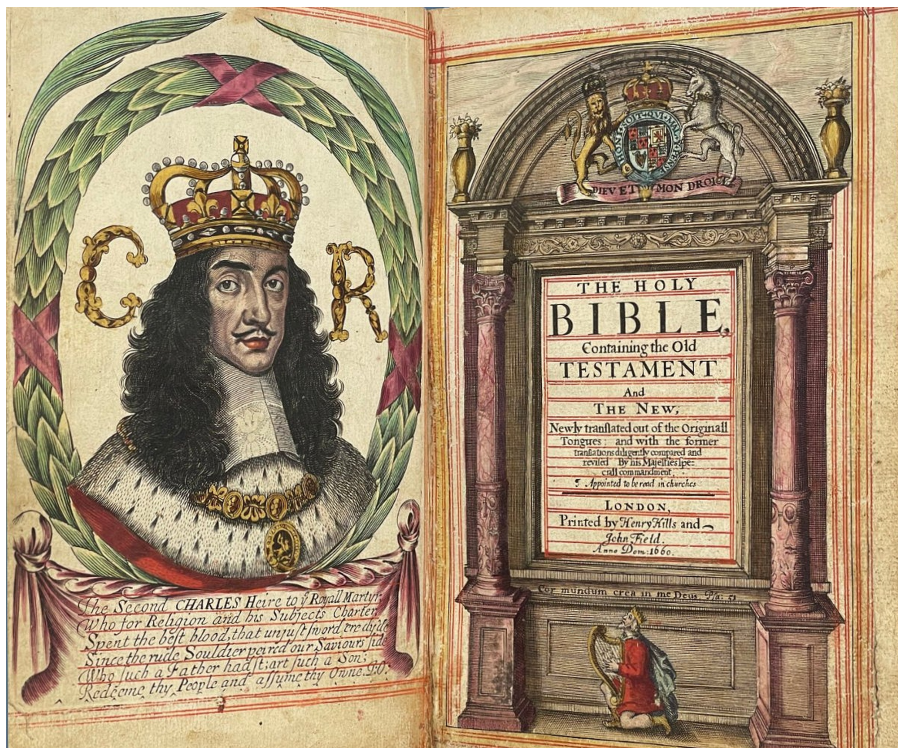 C R
The Second CHARLES Heire to yͤ Royall Martyr,
Who for Religion and his Subjects Charter
Spent the best blood, that unjust sword ere dy'de
Since the rude Souldier peirced our Saviours side
Who such a Father hadst; art such a Son;
Redeeme thy People and assume thy Owne.
HONI SOIT QVI MAL
DIEV ET MON DROICT
THE HOLY
BIBLE,
Containing the Old
TESTAMENT
And
THE NEW,
Newly tranſlated out of the Originall
Tongues: and with the former
tranſlations diligently compared and
reviſed By his Majeſties ſpe-
ciall commandment.
Appointed to be read in churches
LONDON,
Printed by Henry Hills and
John Field.
Anno Dom: 1660.
Cor mundum crea in me Deus Psa: 51